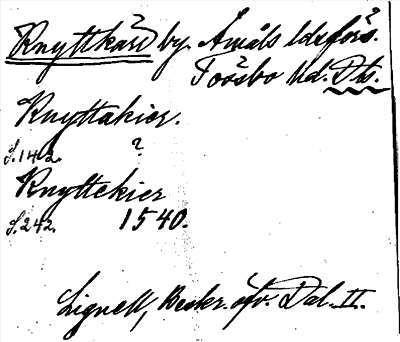 Knyttkärr by. Åmåls ldsförs.
Tössbo hd. Dls.
Knyttakier.
S. 142. ?
Knyttekier
S. 242. 1540.
Lignell, Beskr. öfv. Dal. II.